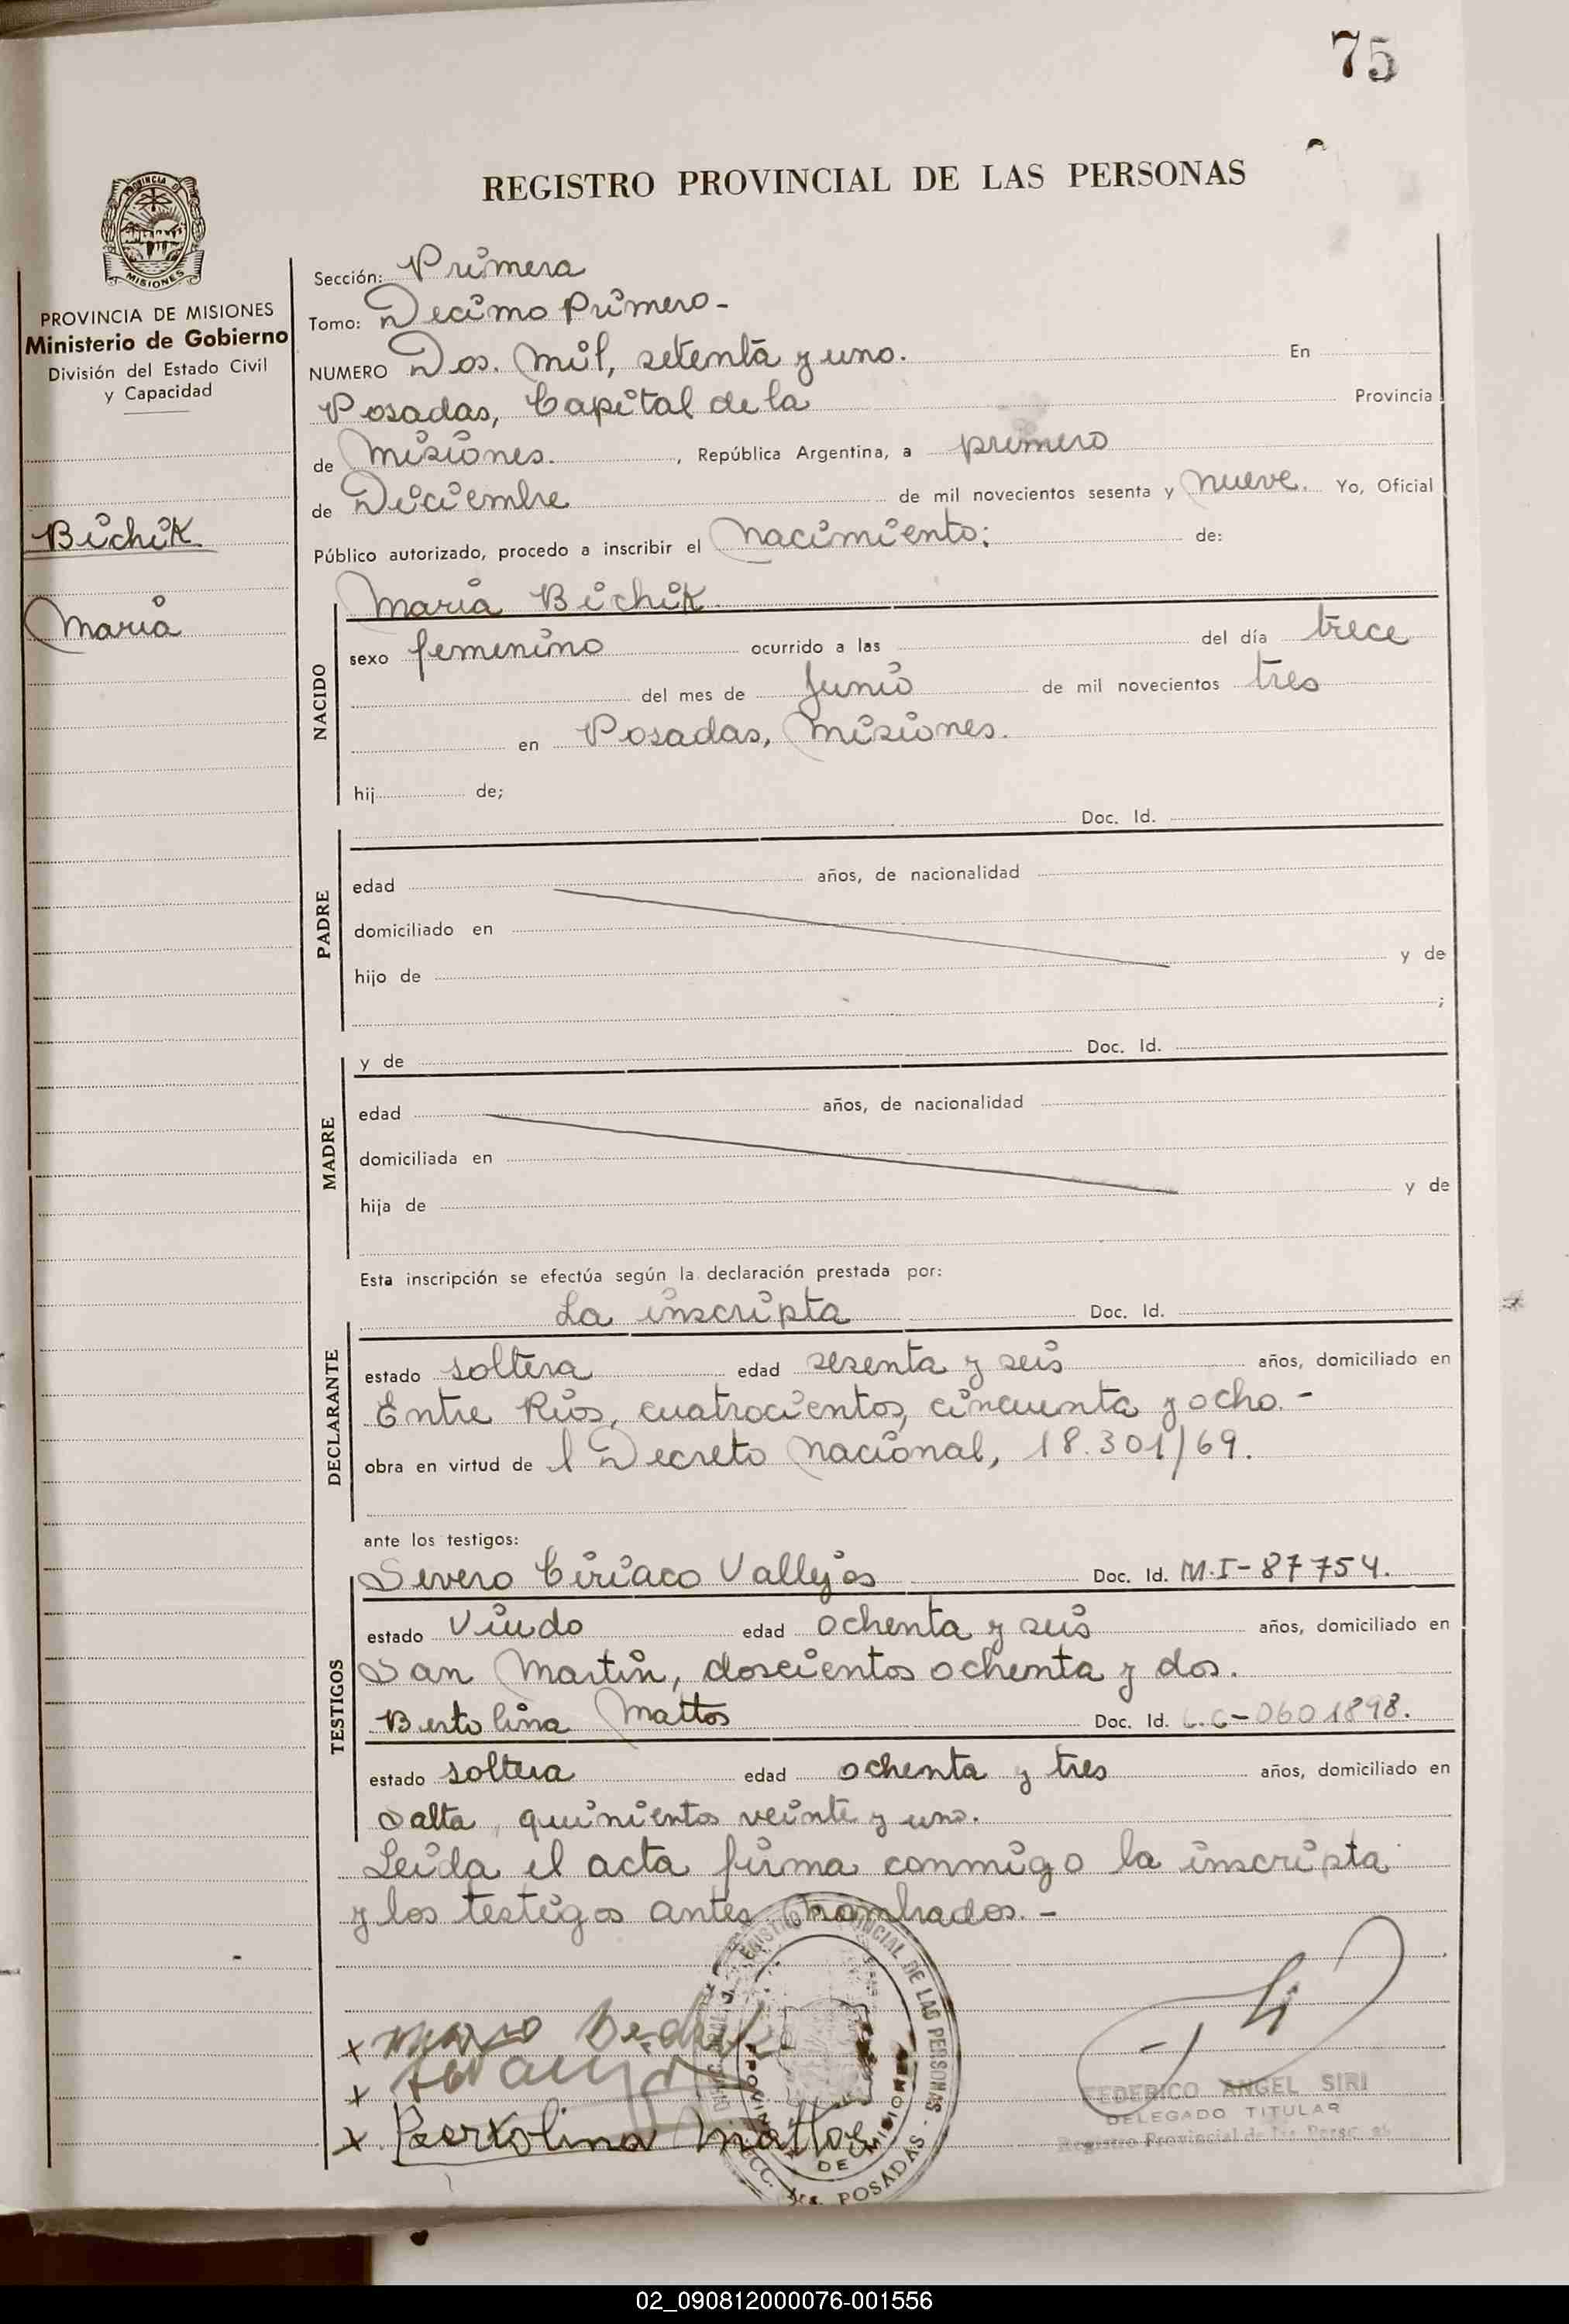 75
REGISTRO PROVINCIAL DE LAS PERSONAS
PROVINCIA DE MISIONES
PROVINCIA DE MISIONES
Ministerio de Gobierno
División del Estado Civil
y Capacidad
Bichik
Maria
Sección: Primera
Tomo: Decimo Primero-
NUMERO Dos. mil, setenta y uno. En
Posadas, Capital de la Provincia
de Misiones. , República Argentina, a primero
de Diciembre de mil novecientos sesenta y nueve. Yo, Oficial
Público autorizado, procedo a inscribir el nacimiento; de:
Maria Bichik
NACIDO
sexo femenino ocurrido a las del día trece
del mes de Junio de mil novecientos tres
en Posadas, Misiones.
hij de;
PADRE
Doc. Id.
edad años, de nacionalidad
domiciliado en
hijo de y de
;
MADRE
y de Doc. Id.
edad años, de nacionalidad
domiciliada en
hija de y de
Esta inscripción se efectúa según la declaración prestada por:
DECLARANTE
La inscripta Doc. Id.
estado soltera edad sesenta y seis años, domiciliado en
Entre Rios, cuatrocientos, cincuenta y ocho.-
obra en virtud de l Decreto Nacional, 18.301/69.
ante los testigos:
TESTIGOS
Severo Ciriaco Vallejos Doc. Id. M.I-87754.
estado Viudo edad ochenta y seis años, domiciliado en
San Martin, doscientos ochenta y dos.
Bertolina Mattos Doc. Id. L.C-0601898.
estado soltera edad ochenta y tres años, domiciliado en
Salta, quinientos veinte y uno.
Leida el acta firma conmigo la inscripta
y los testigos antes nombrados.-
x
x
x Bertolina Mattos
REGISTRO PROVINCIAL DE LAS PERSONAS - POSADAS
PROVINCIA DE MISIONES
FEDERICO ANGEL SIRI
DELEGADO TITULAR
Registro Provincial de las
02_090812000076-001556